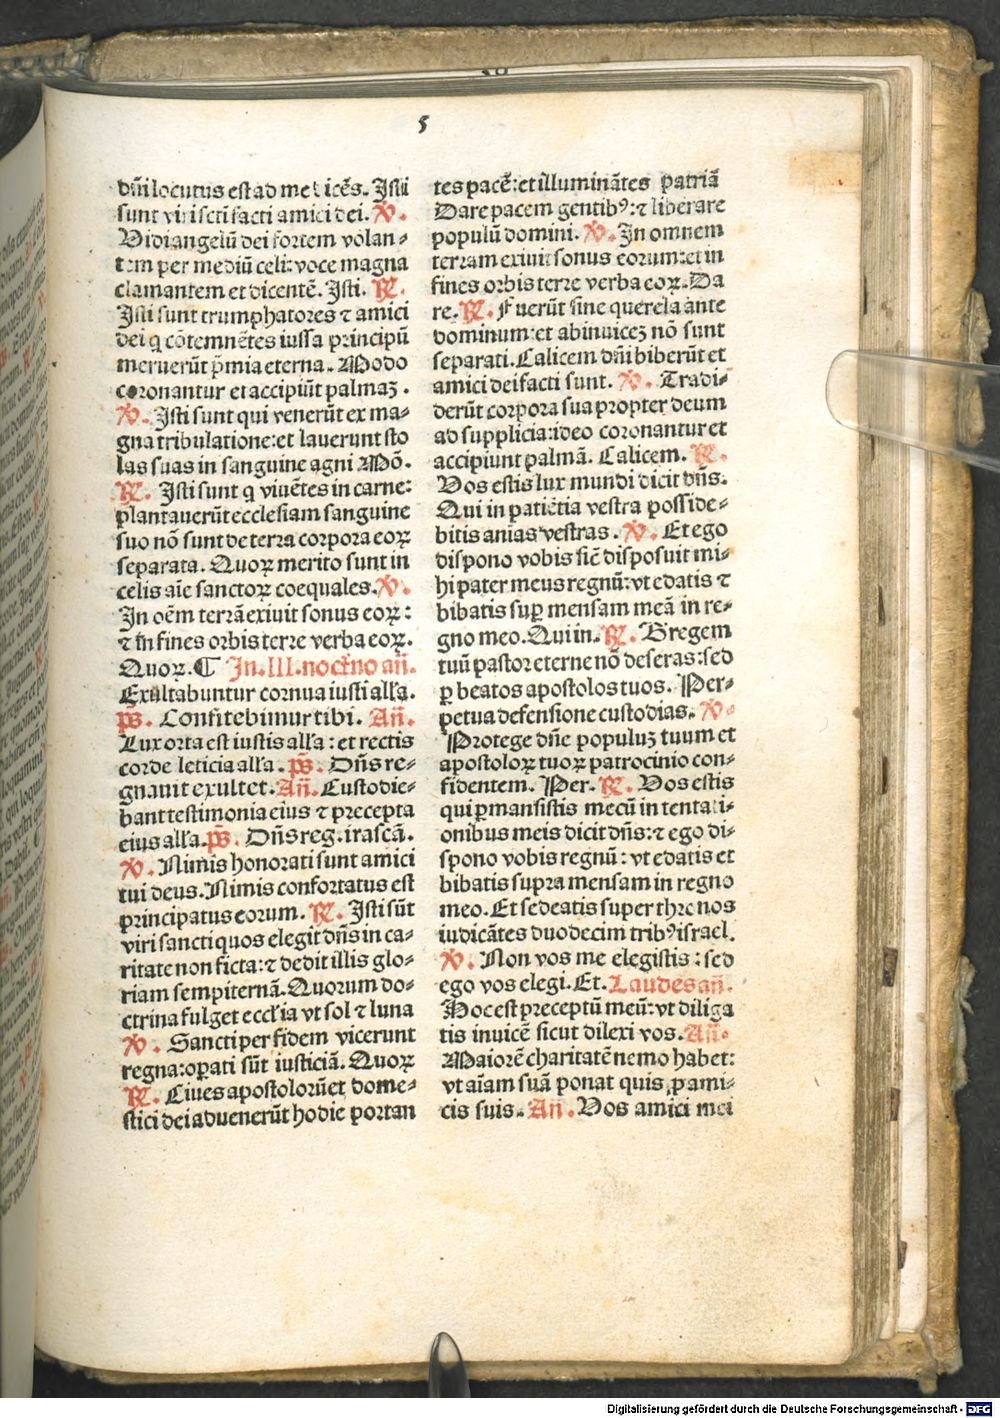 5
dñi locutus est ad me dicēs. Isti
sunt viri scti facti amici dei. V.
Vidi angelū dei fortem volan-
tem per mediū celi: voce magna
clamantem et dicentē. Isti. R.
Isti sunt triumphatores ⁊ amici
dei q cōtemnētes iussa principū
meruerūt p̄mia eterna. Modo
coronantur et accipiūt palmaꝫ.
V. Isti sunt qui venerūt ex ma-
gna tribulatione: et lauerunt sto
las suas in sanguine agni Mō.
R. Isti sunt q viuētes in carne:
plantauerūt ecclesiam sanguine
suo nō sunt de terra corpora eoꝝ
separata. Quoꝝ merito sunt in
celis aīe sanctoꝝ coequales. V.
In oēm terrā exiuit sonus eoꝝ:
⁊ in fines orbis terre verba eoꝝ.
Quoꝝ. ¶ In. III. noct̄no an̄.
Exultabuntur cornua iusti all'a.
ps. Confitebimur tibi. An̄.
Lux orta est iustis all'a: et rectis
corde leticia all'a. ps. Dn̄s re-
gnauit exultet. An̄. Custodie-
bant testimonia eius ⁊ precepta
eius all'a. ps. Dn̄s reg. irascā.
V. Nimis honorati sunt amici
tui deus. Nimis confortatus est
principatus eorum. R. Isti sūt
viri sancti quos elegit dn̄s in ca-
ritate non ficta: ⁊ dedit illis glo-
riam sempiternā. Quorum do-
ctrina fulget eccl'ia vt sol ⁊ luna
V. Sancti per fidem vicerunt
regna: oꝑati sūt iusticiā. Quoꝝ
R. Ciues apostolorū et dome-
stici dei aduenerūt hodie portan
tes pacē: et illuminātes patriā
Dare pacem gentibꝰ: ⁊ liberare
populū domini. V. In omnem
terram exiuit sonus eorum: et in
fines orbis terre verba eoꝝ. Da
re. R. Fuerūt sine querela ante
dominum: et abinuiceꝫ nō sunt
separati. Calicem dn̄i biberūt et
amici dei facti sunt. V. Tradi-
derūt corpora sua propter deum
ad supplicia: ideo coronantur et
accipiunt palmā. Calicem. R.
Vos estis lux mundi dicit dn̄s.
Qui in patiētia vestra posside-
bitis anīas vestras. V. Et ego
dispono vobis sic̄ disposuit mi-
hi pater meus regnū: vt edatis ⁊
bibatis suꝑ mensam meā in re-
gno meo. Qui in. R. Gregem
tuū pastor eterne nō deseras: sed
ꝑ beatos apostolos tuos. Per-
petua defensione custodias. V.
Protege dn̄e populuꝫ tuum et
apostoloꝝ tuoꝝ patrocinio con-
fidentem. Per. R. Vos estis
qui ꝑmansistis mecū in tentati-
onibus meis dicit dn̄s: ⁊ ego di-
spono vobis regnū: vt edatis et
bibatis supra mensam in regno
meo. Et sedeatis super thronos
iudicātes duodecim tribꝰ israel.
V. Non vos me elegistis: sed
ego vos elegi. Et. Laudes an̄.
Hoc est preceptū meū: vt diliga
tis inuicē sicut dilexi vos. An̄.
Maiorē charitatē nemo habet:
vt aīam suā ponat quis ꝓ ami-
cis suis. An̄. Vos amici mei
Digitalisierung gefördert durch die Deutsche Forschungsgemeinschaft - DFG